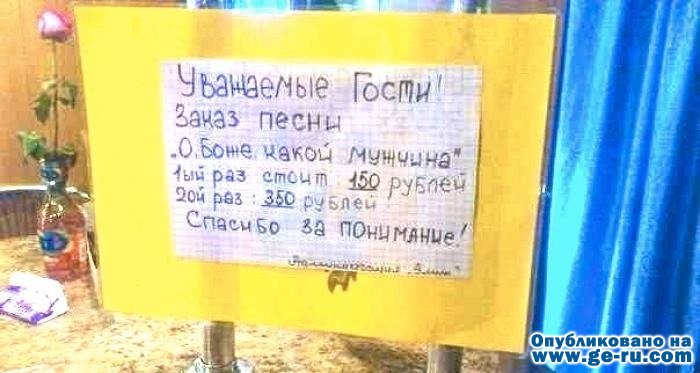 Уважаемые Гости!
Заказ песни
„О, Боже, какой мужчина"
1ый раз стоит: 150 рублей
2ой раз: 350 рублей.
Спасибо за понимание!
Администрация
Опубликовано на
www.ge-ru.com